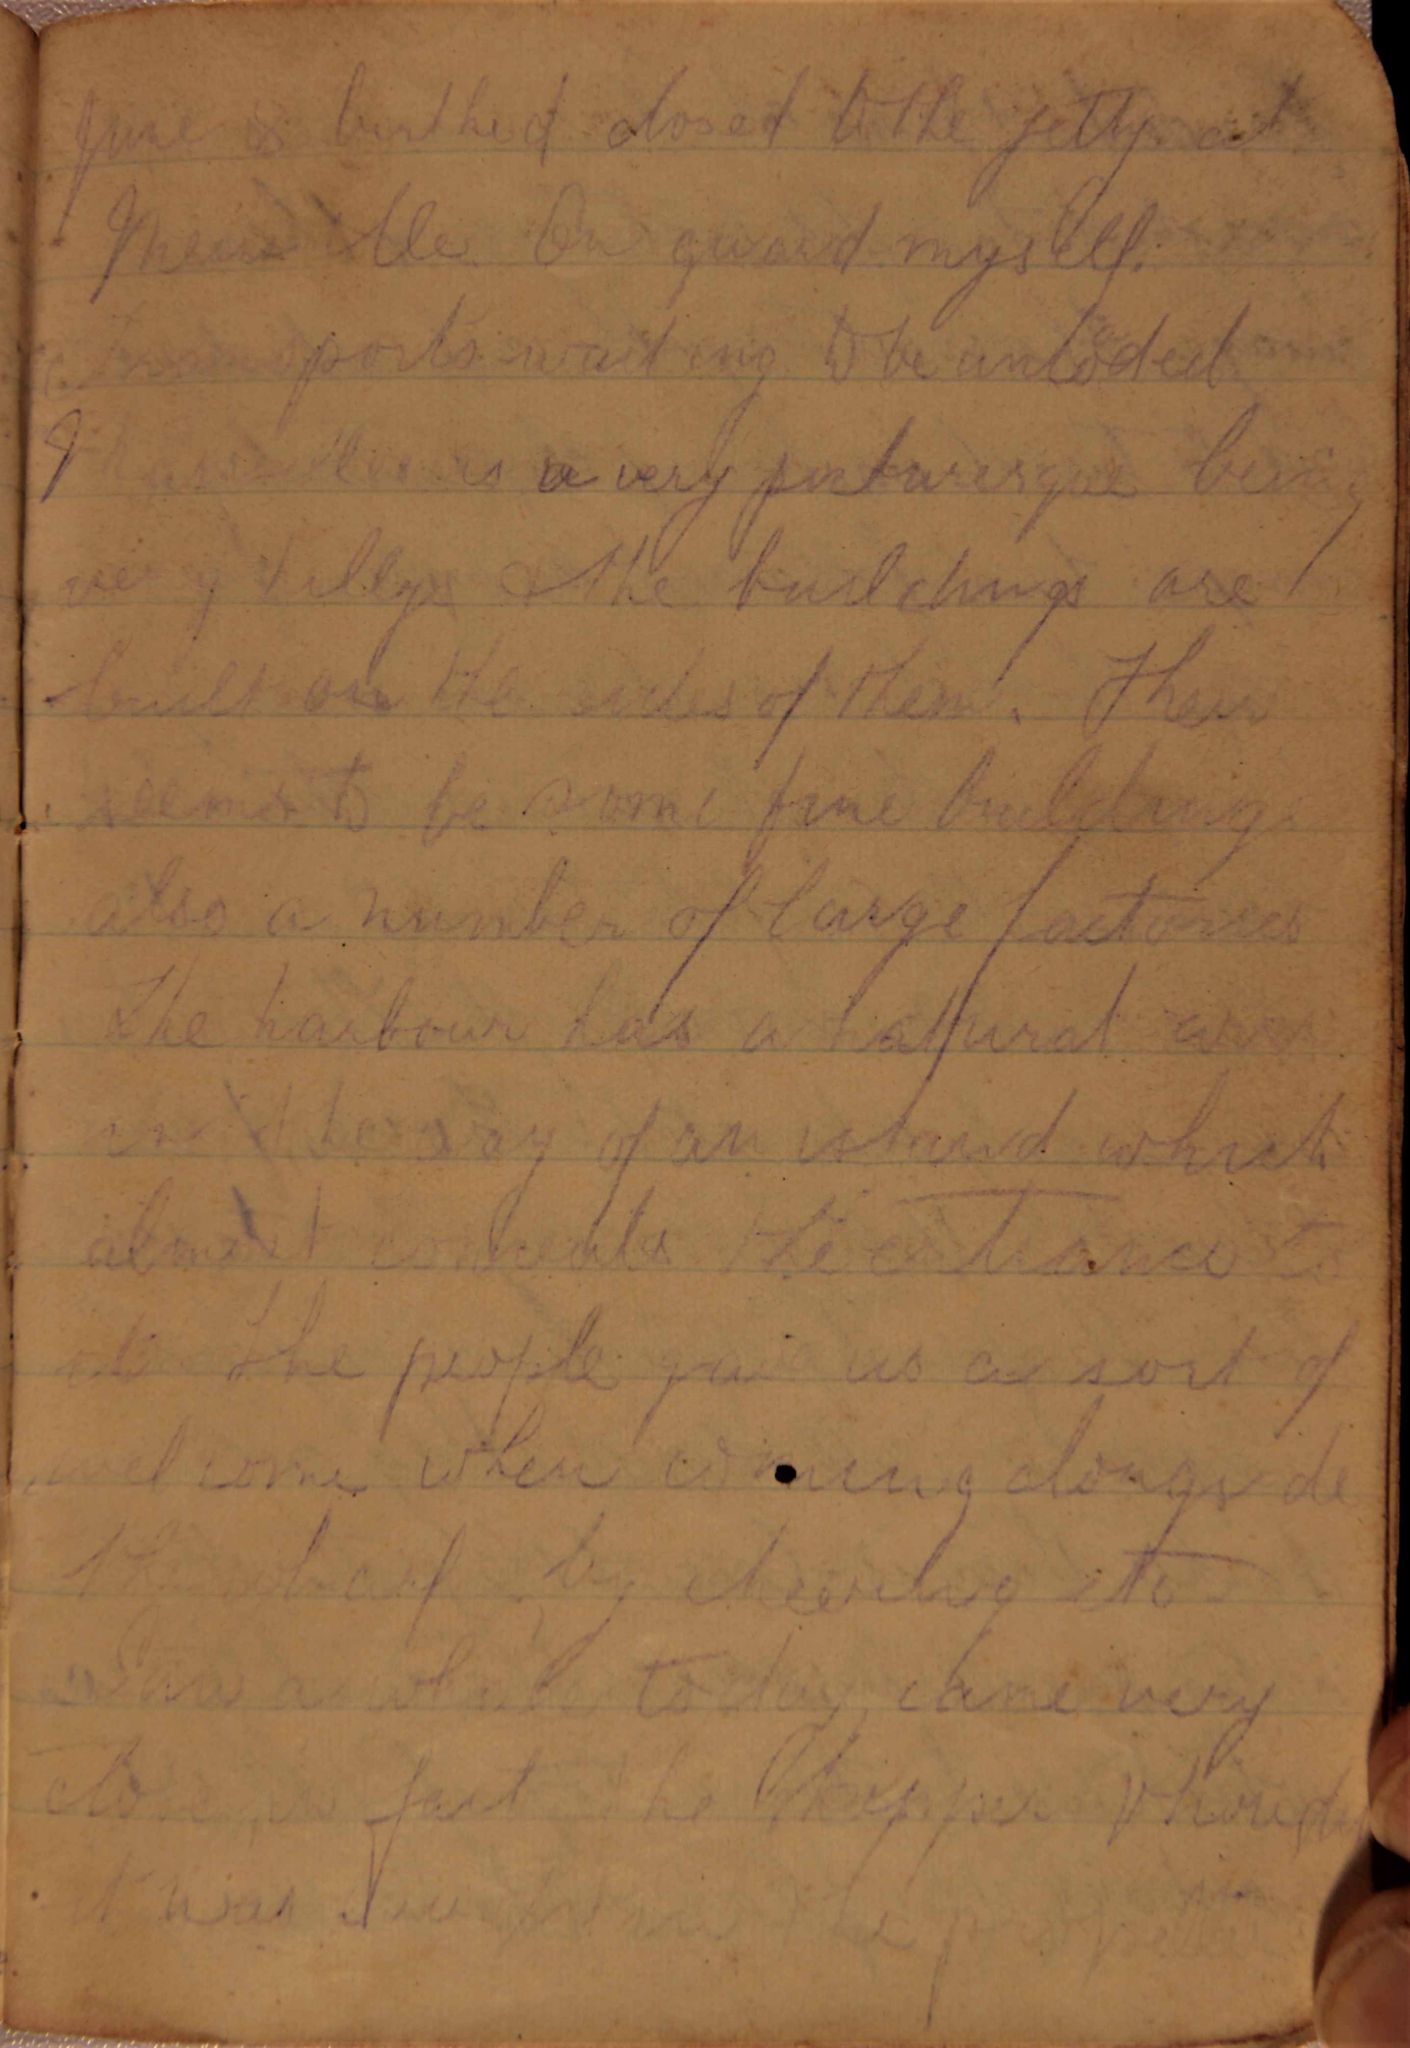 June & burthed closed to the jetty at
On guard myself.
transports waiting to be unloded
is a very picturesque being
very hilly & the buildings are
built on the sides of them. Their
seems to be some fine buildings
also a number of large factories
The harbour has a natural
in the way of an island which
almost conceals the entrance to
it. The people gave us a sort of
welcome when coming alongside
the wharf by cheering etc
Saw a whale today, came very
close in fact the Skipper thought
it was in the propeller